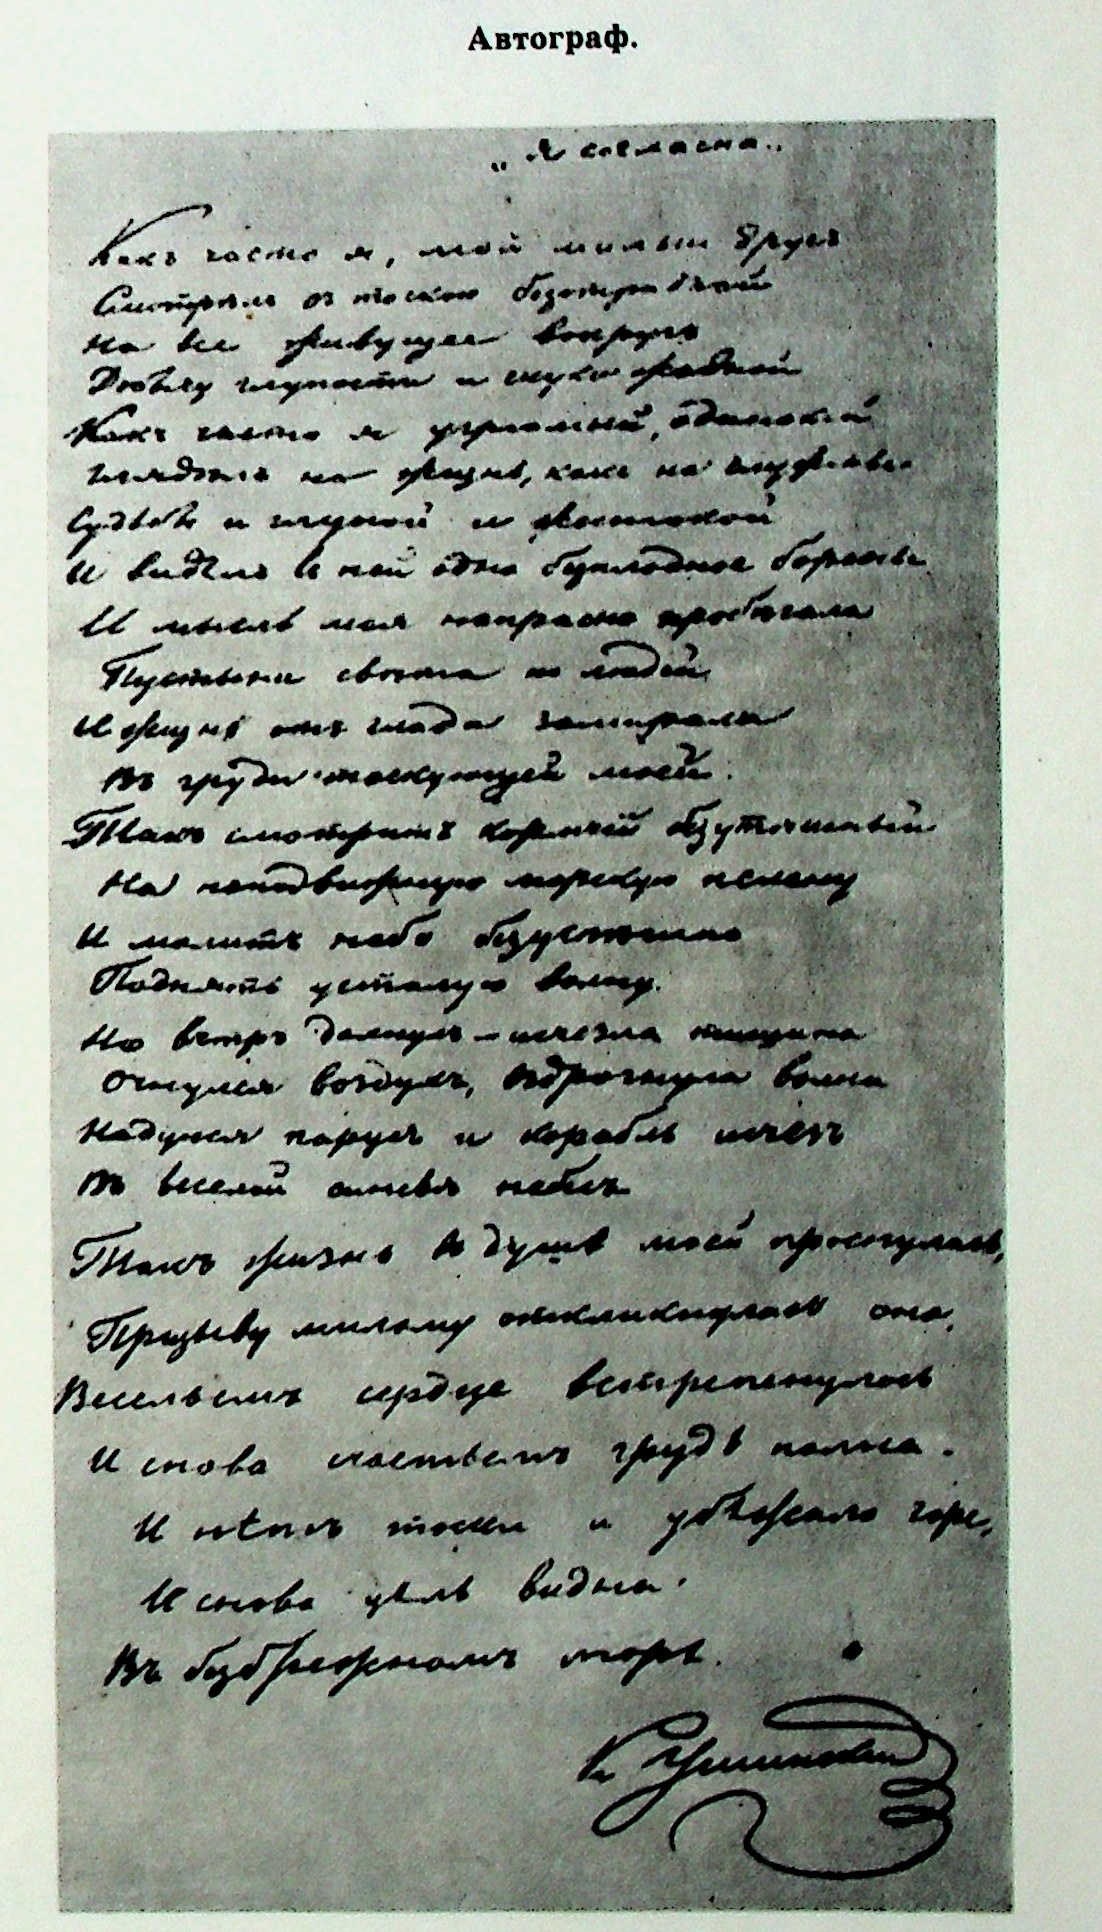 Автограф.
„Я согласна„
Какъ часто я, мой милый другъ
Смотрѣлъ съ тоскою безотрадной
На все живущее вокругъ
Добычу глупости и скуки жадной
Какъ часто я угрюмый, одинокій
Глядѣлъ на жизнь, какъ на
Судьбы и глупой и жестокой
И видѣлъ въ ней одно безплодное боренье
И мысль моя напрасно пробѣгала
Пустыни свѣта и людей
И жизнь отъ глада замирала
Въ груди тоскующей моей.
Такъ смотритъ кормчій безутѣшный
На неподвижную морскую пелену
И молитъ небо безуспѣшно
Поднять усталую волну.
Но вѣтръ дохнулъ – исчезла тишина
Очнулся воздухъ, вздрогнула волна
Надулся парусъ и корабль исчезъ
Въ веселой синевѣ небесъ
Такъ жизнь въ душѣ моей проснулась,
Призыву милому откликнулась она,
Весельемъ сердце встрепенулось
И снова счастьемъ грудь полна.
И нѣтъ тоски и убѣжало горе,
И снова цѣль видна.
Въ безбрежномъ морѣ.
К Ушинскій